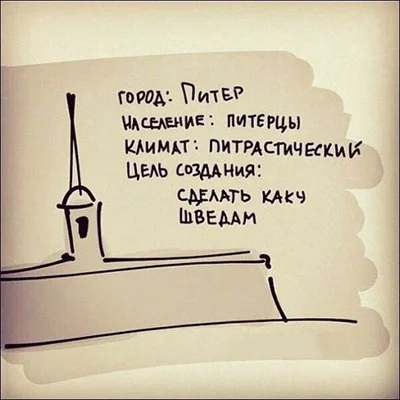 ГОРОД: ПИТЕР
НАСЕЛЕНИЕ: ПИТЕРЦЫ
КЛИМАТ: ПИТРАСТИЧЕСКИЙ
ЦЕЛЬ СОЗДАНИЯ:
СДЕЛАТЬ КАКУ
ШВЕДАМ